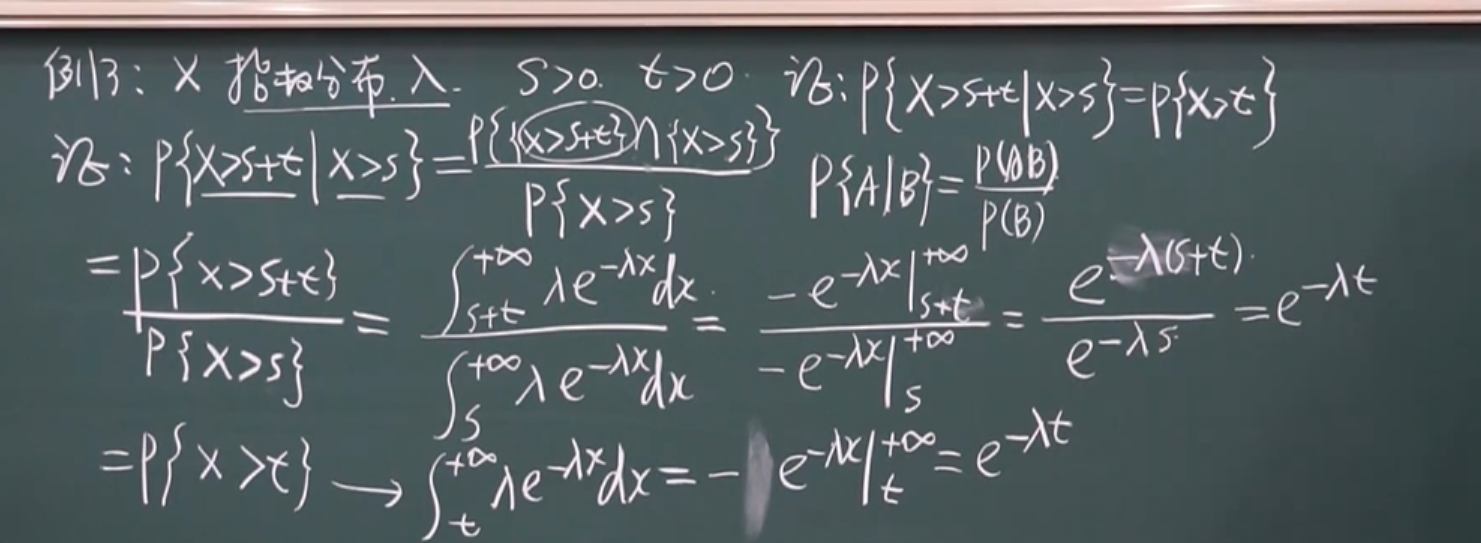 例13: X 指数分布. λ. S>0. t>0. 证: P{X>s+t|X>s}=P{X>t}
证: P{X>s+t|X>s}=P{{X>s+t}∩{X>s}}/P{X>s} P{A|B}=P(AB)/P(B)
=P{X>s+t}/P{X>s} = ∫_{s+t}^{+∞} λe^{-λx}dx / ∫_{s}^{+∞} λe^{-λx}dx = -e^{-λx}|_{s+t}^{+∞} / -e^{-λx}|_{s}^{+∞} = e^{-λ(s+t)} / e^{-λs} = e^{-λt}
=P{X>t} → ∫_{t}^{+∞} λe^{-λx}dx = -e^{-λx}|_{t}^{+∞} = e^{-λt}